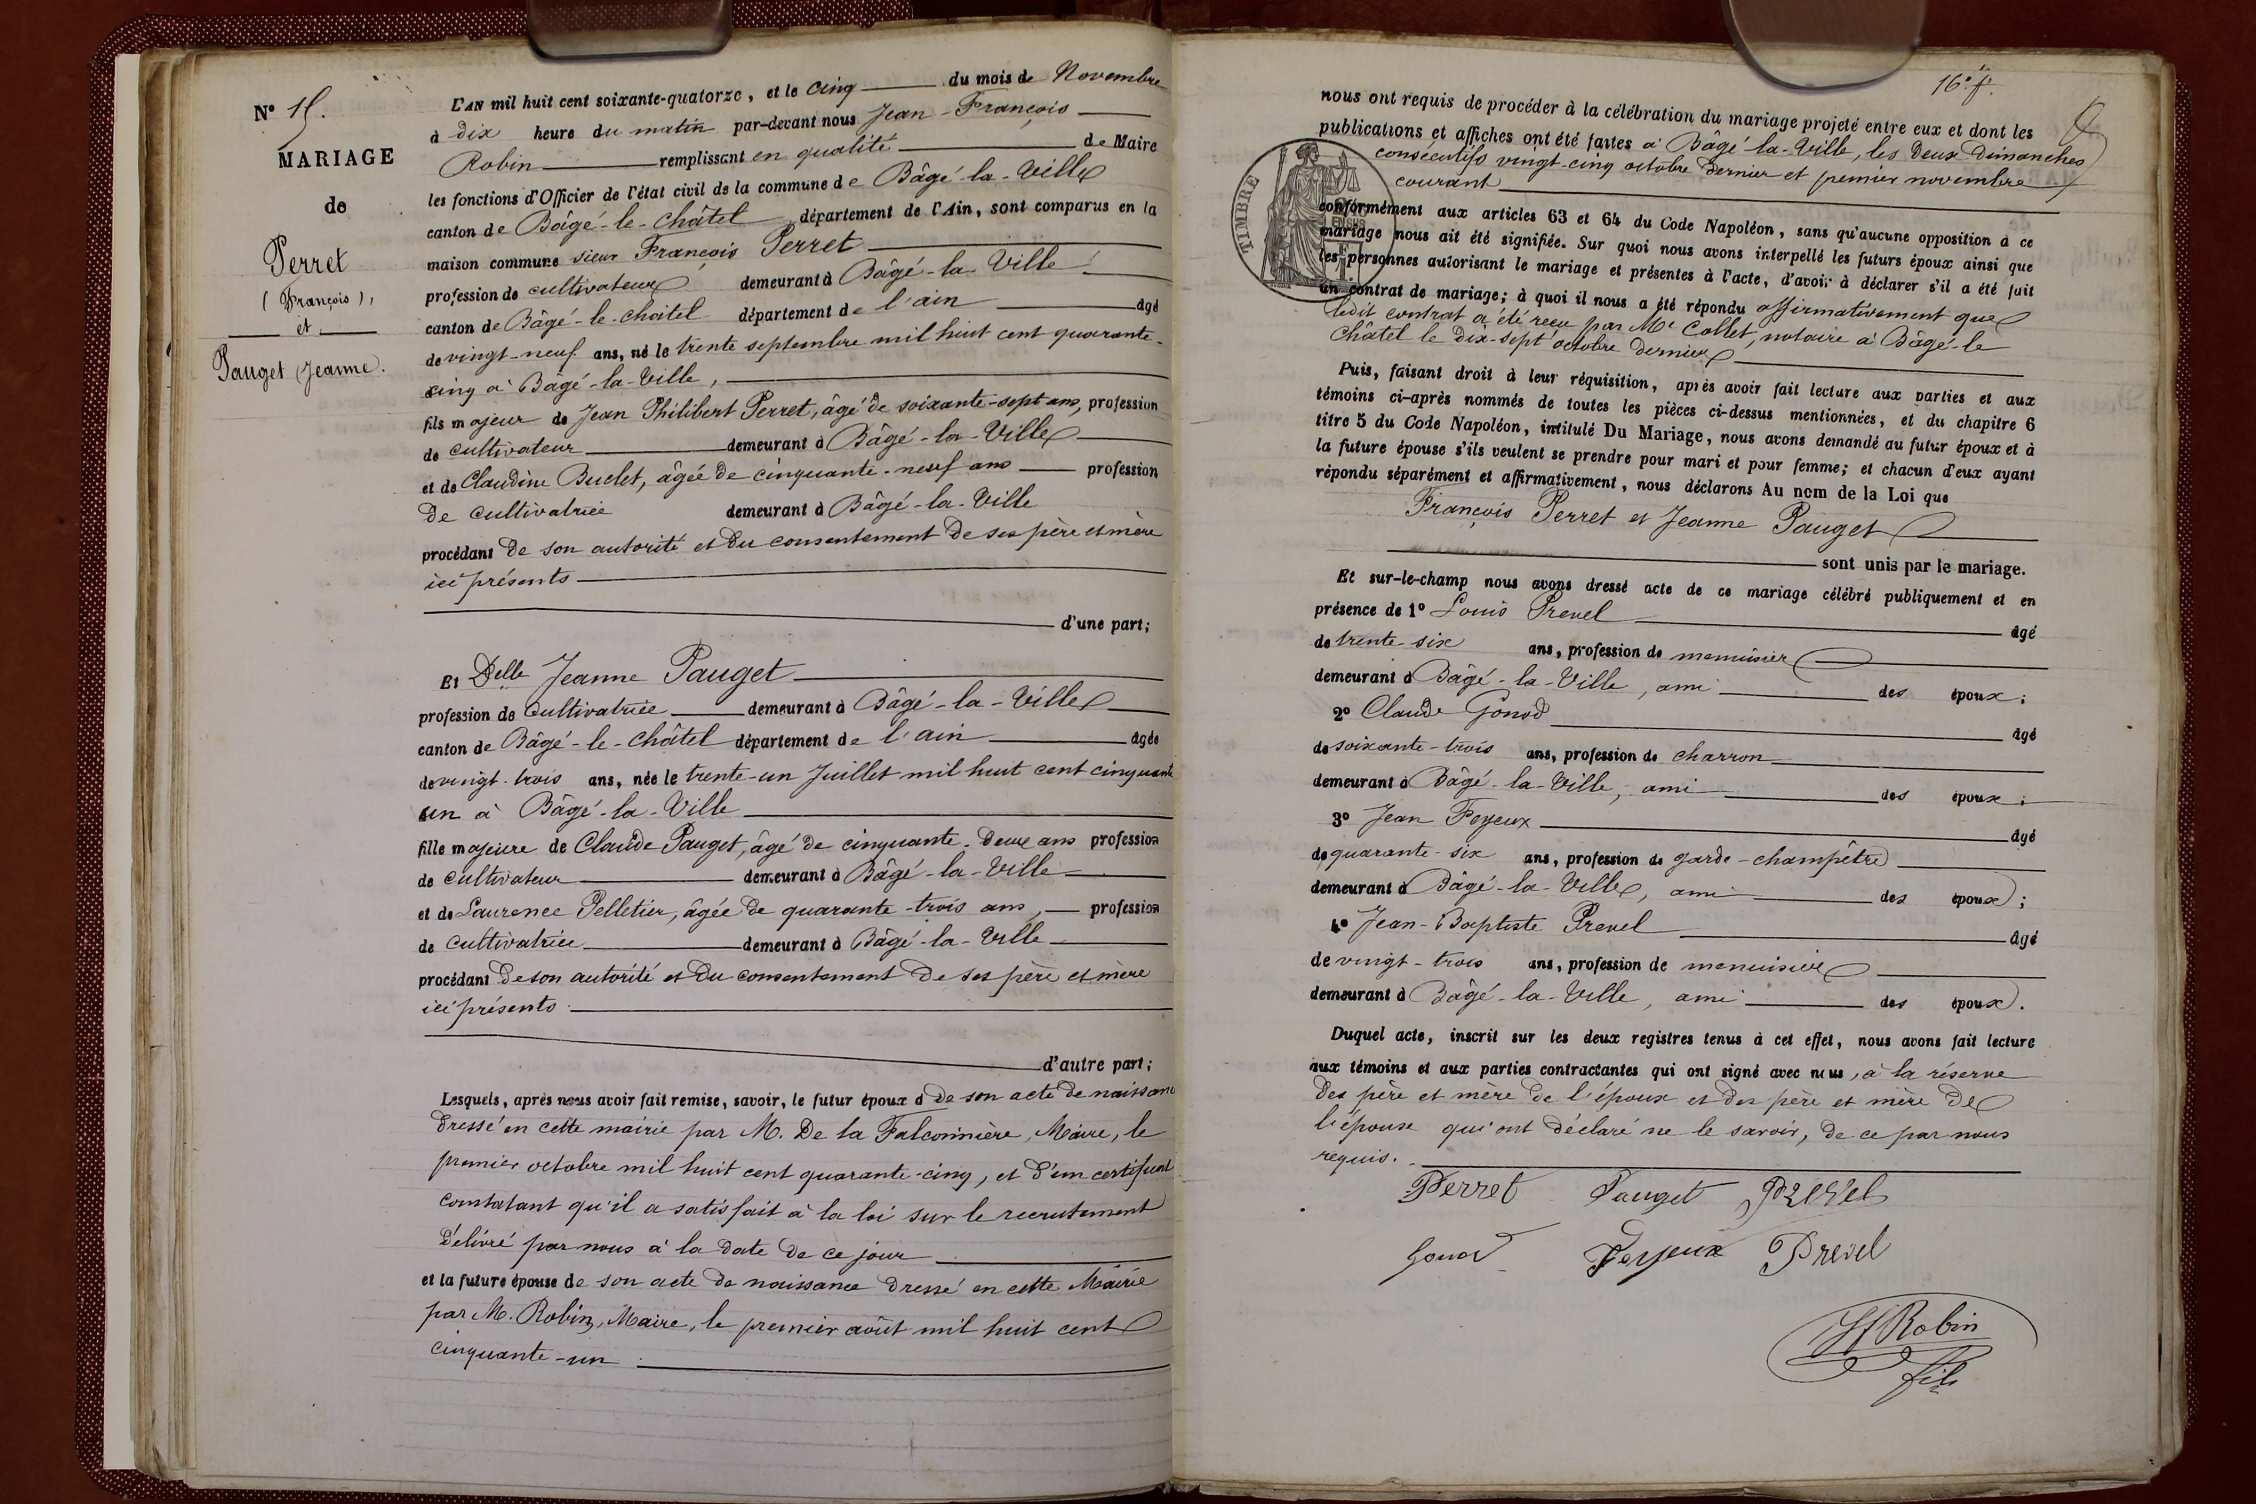 N° 15.
MARIAGE
de
Perret
(François),
et
Pauget Jeanne.
L'AN mil huit cent soixante-quatorze, et le cinq du mois de Novembre
à dix heure du matin par-devant nous Jean-François
Robin remplissant en qualité de Maire
les fonctions d'Officier de l'état civil de la commune de Bâgé-la-Ville
canton de Bâgé-le-Châtel département de l'Ain, sont comparus en la
maison commune sieur François Perret
profession de cultivateur demeurant à Bâgé-la-Ville
canton de Bâgé-le-châtel département de l'ain âgé
de vingt-neuf ans, né le trente septembre mil huit cent quarante-
cinq à Bâgé-la-Ville,
fils majeur de Jean Philibert Perret, âgé de soixante-sept ans, profession
de cultivateur demeurant à Bâgé-la-Ville
et de Claudine Buclet, âgée de cinquante-neuf ans profession
de cultivatrice demeurant à Bâgé-la-Ville
procédant de son autorité et du consentement de ses père et mère
ici présents
d'une part;
Et Delle Jeanne Pauget
profession de cultivatrice demeurant à Bâgé-la-Ville
canton de Bâgé-le-châtel département de l'ain âgée
de vingt-trois ans, née le trente-un Juillet mil huit cent cinquante
un à Bâgé-la-Ville
fille majeure de Claude Pauget, âgé de cinquante-deux ans profession
de cultivateur demeurant à Bâgé-la-Ville
et de Laurence Pelletier, âgée de quarante-trois ans, profession
de cultivatrice demeurant à Bâgé-la-Ville
procédant de son autorité et du consentement de ses père et mère
ici présents
d'autre part;
Lesquels, après nous avoir fait remise, savoir, le futur époux d de son acte de naissance
dressé en cette mairie par M. De la Falconnière, Maire, le
premier octobre mil huit cent quarante-cinq, et d'un certificat
constatant qu'il a satisfait à la loi sur le recrutement
délivré par nous à la date de ce jour
et la future épouse de son acte de naissance dressé en cette Mairie
par M. Robin, Maire, le premier août mil huit cent
cinquante-un
16e f.
nous ont requis de procéder à la célébration du mariage projeté entre eux et dont les
publications et affiches ont été faites à Bâgé-la-Ville, les deux dimanches
consécutifs vingt-cinq octobre dernier et premier novembre
courant
TIMBRE
conformément aux articles 63 et 64 du Code Napoléon, sans qu'aucune opposition à ce
mariage nous ait été signifiée. Sur quoi nous avons interpellé les futurs époux ainsi que
les personnes autorisant le mariage et présentes à l'acte, d'avoir à déclarer s'il a été fait
un contrat de mariage; à quoi il nous a été répondu affirmativement que
ledit contrat a été reçu par Me Collet, notaire à Bâgé-le
châtel le dix-sept octobre dernier
Puis, faisant droit à leur réquisition, après avoir fait lecture aux parties et aux
témoins ci-après nommés de toutes les pièces ci-dessus mentionnées, et du chapitre 6
titre 5 du Code Napoléon, intitulé Du Mariage, nous avons demandé au futur époux et à
la future épouse s'ils veulent se prendre pour mari et pour femme; et chacun d'eux ayant
répondu séparément et affirmativement, nous déclarons Au nom de la Loi que
François Perret et Jeanne Pauget
sont unis par le mariage.
Et sur-le-champ nous avons dressé acte de ce mariage célébré publiquement et en
présence de 1° Louis Prevel âgé
de trente-six ans, profession de menuisier
demeurant à Bâgé-la-Ville, ami des époux;
2° Claude Gonod âgé
de soixante-trois ans, profession de charron
demeurant à Bâgé-la-Ville, ami des époux;
3° Jean Feyeux âgé
de quarante-six ans, profession de garde-champêtre
demeurant à Bâgé-la-Ville, ami des époux;
4° Jean-Baptiste Prevel âgé
de vingt-trois ans, profession de menuisier
demeurant à Bâgé-la-Ville, ami des époux.
Duquel acte, inscrit sur les deux registres tenus à cet effet, nous avons fait lecture
aux témoins et aux parties contractantes qui ont signé avec nous, à la réserve
des père et mère de l'époux et des père et mère de
l'épouse qui ont déclaré ne le savoir, de ce par nous
requis.
Perret Pauget Prevel
Gonod Feyeux Prevel
Robin
fils